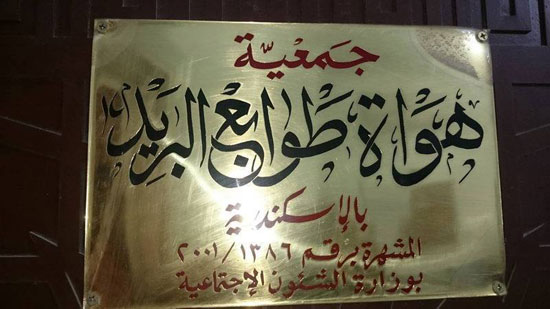 جمعية
هواة طوابع البريد
بالإسكندرية
المشهرة برقم ١٣٨٦/٢٠٠١
بوزارة الشئون الإجتماعية